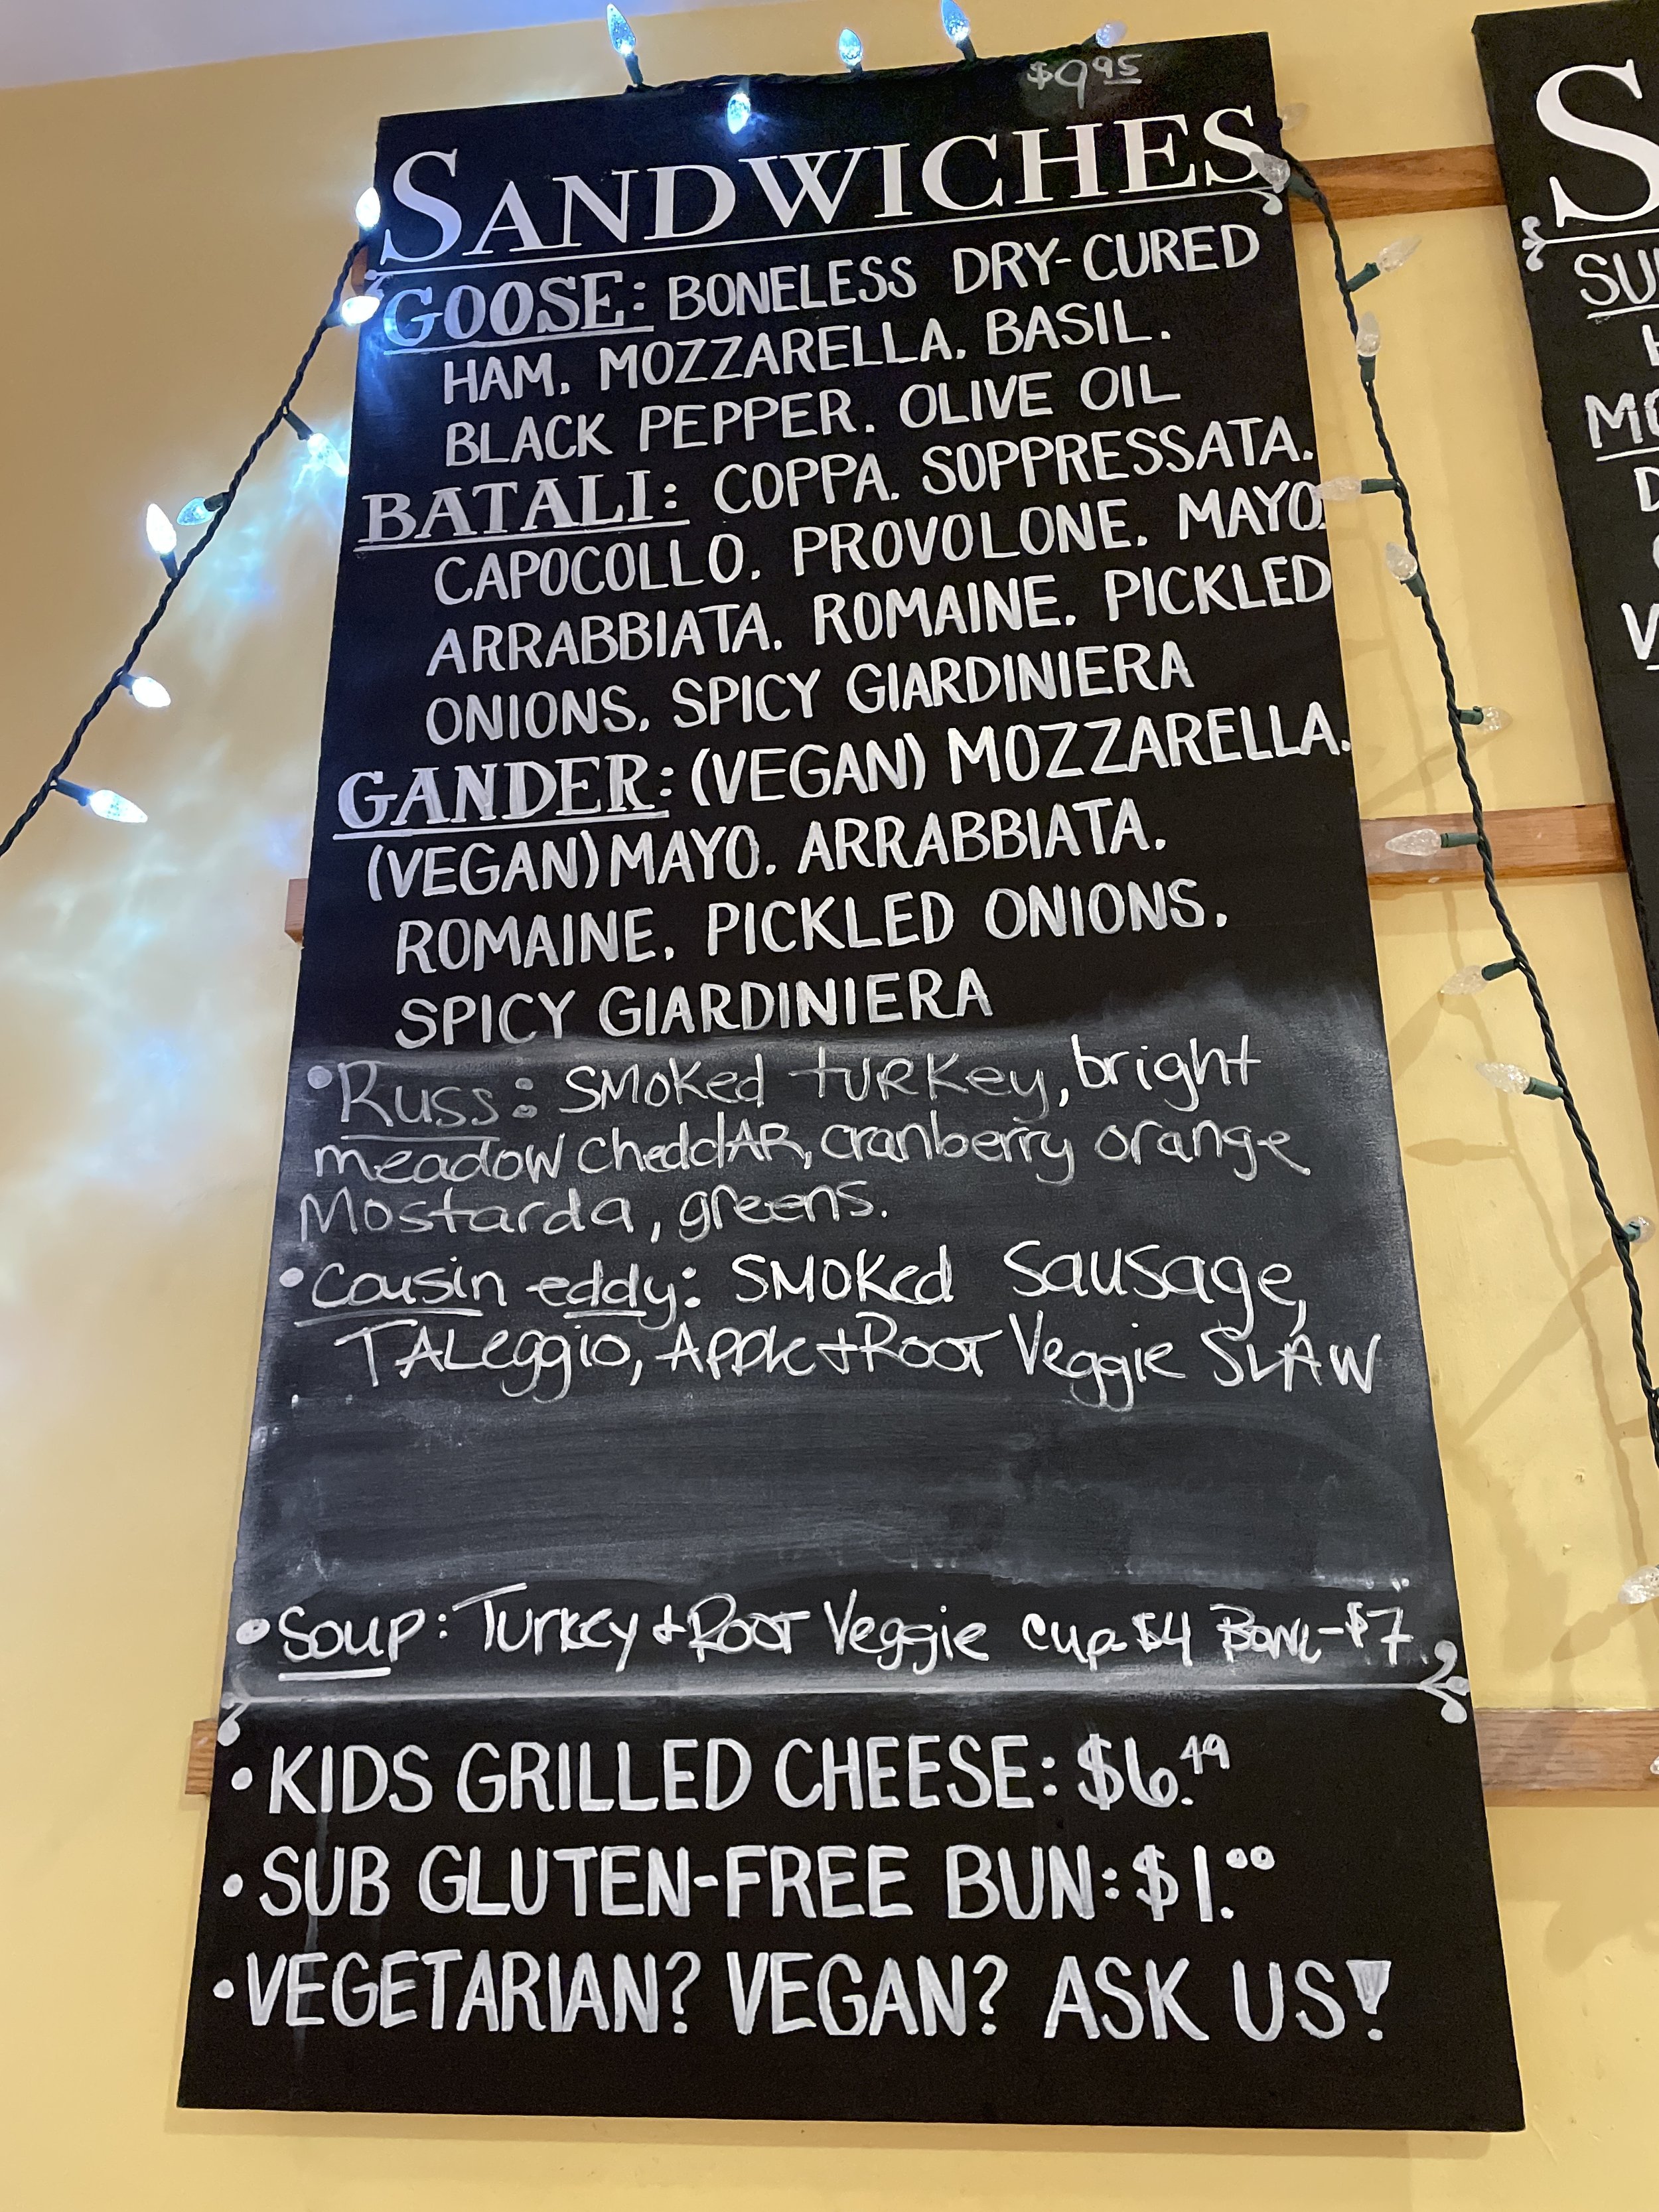 $9.95
SANDWICHES
GOOSE: BONELESS DRY-CURED
HAM. MOZZARELLA. BASIL.
BLACK PEPPER. OLIVE OIL
BATALI: COPPA. SOPPRESSATA.
CAPOCOLLO. PROVOLONE. MAYO.
ARRABBIATA. ROMAINE. PICKLED
ONIONS. SPICY GIARDINIERA
GANDER: (VEGAN) MOZZARELLA.
(VEGAN) MAYO. ARRABBIATA.
ROMAINE. PICKLED ONIONS.
SPICY GIARDINIERA
•Russ: SMOKed tURKey, bright
meadow CheddAR, cranberry orange
Mostarda, greens.
•Cousin eddy: SMOKed Sausage,
TALeggio, Apple + Root Veggie SLAW
•Soup: Turkey + Root Veggie cup $4 Bowl-$7
•KIDS GRILLED CHEESE: $6.49
•SUB GLUTEN-FREE BUN: $1.00
•VEGETARIAN? VEGAN? ASK US!
S
SU
MO
D
V